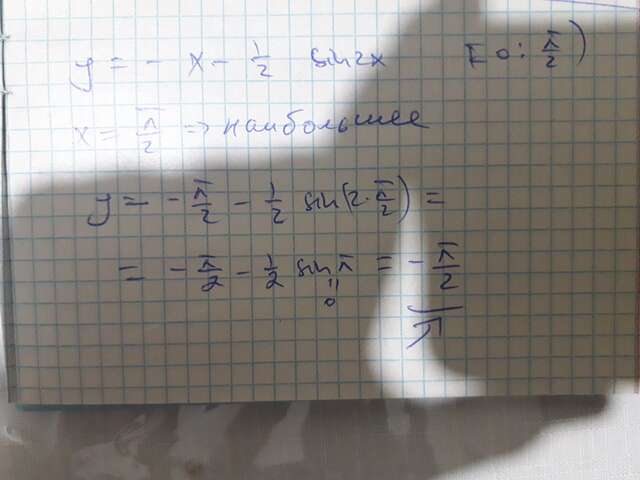 y = - x - 1/2 sin 2x [0; π/2)
x = π/2 => наибольшее
y = - π/2 - 1/2 sin(2·π/2) =
= - π/2 - 1/2 sin π = - π/2
"
0